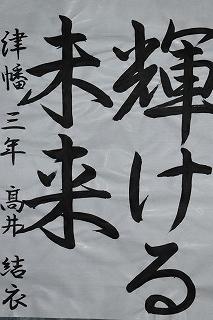 輝ける
未来
津幡 三年 髙井 結衣